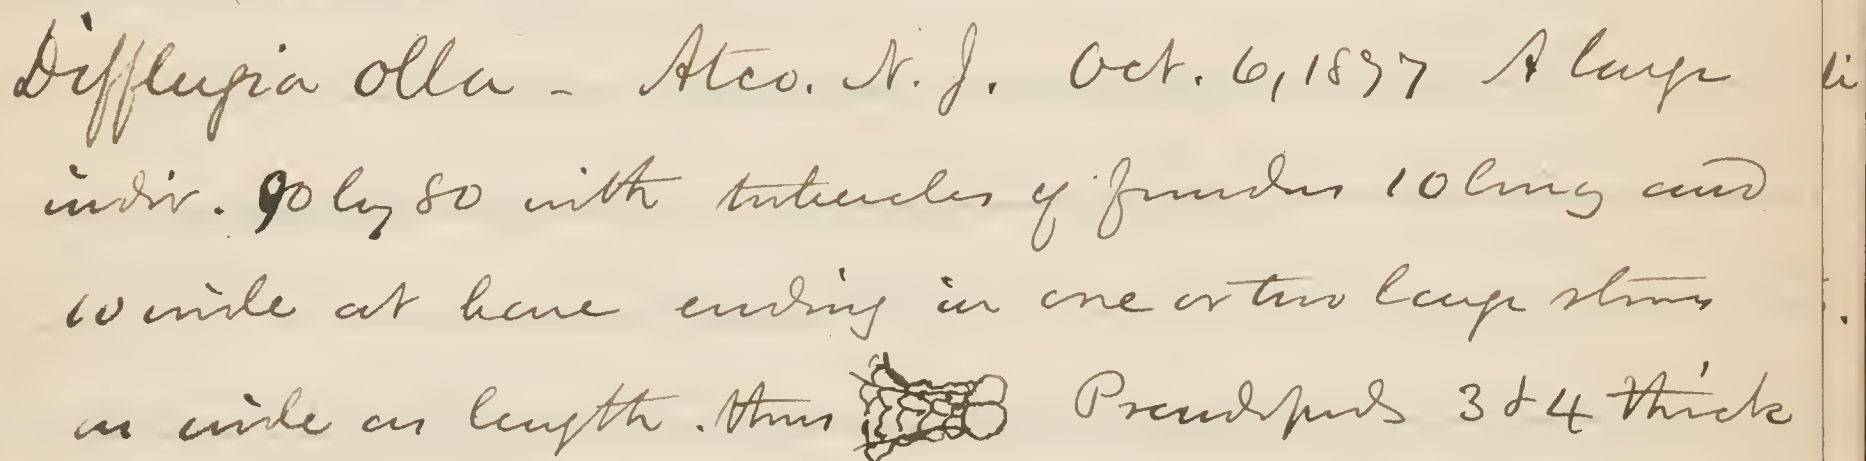 Difflugia olla – Atco. N. J. Oct. 6, 1897 A large
indiv. 90 by 80 with tubercles of fundus 10 long and
10 wide at base ending in one or two large stones
as wide as length. thus Pseudopods 3 & 4 thick